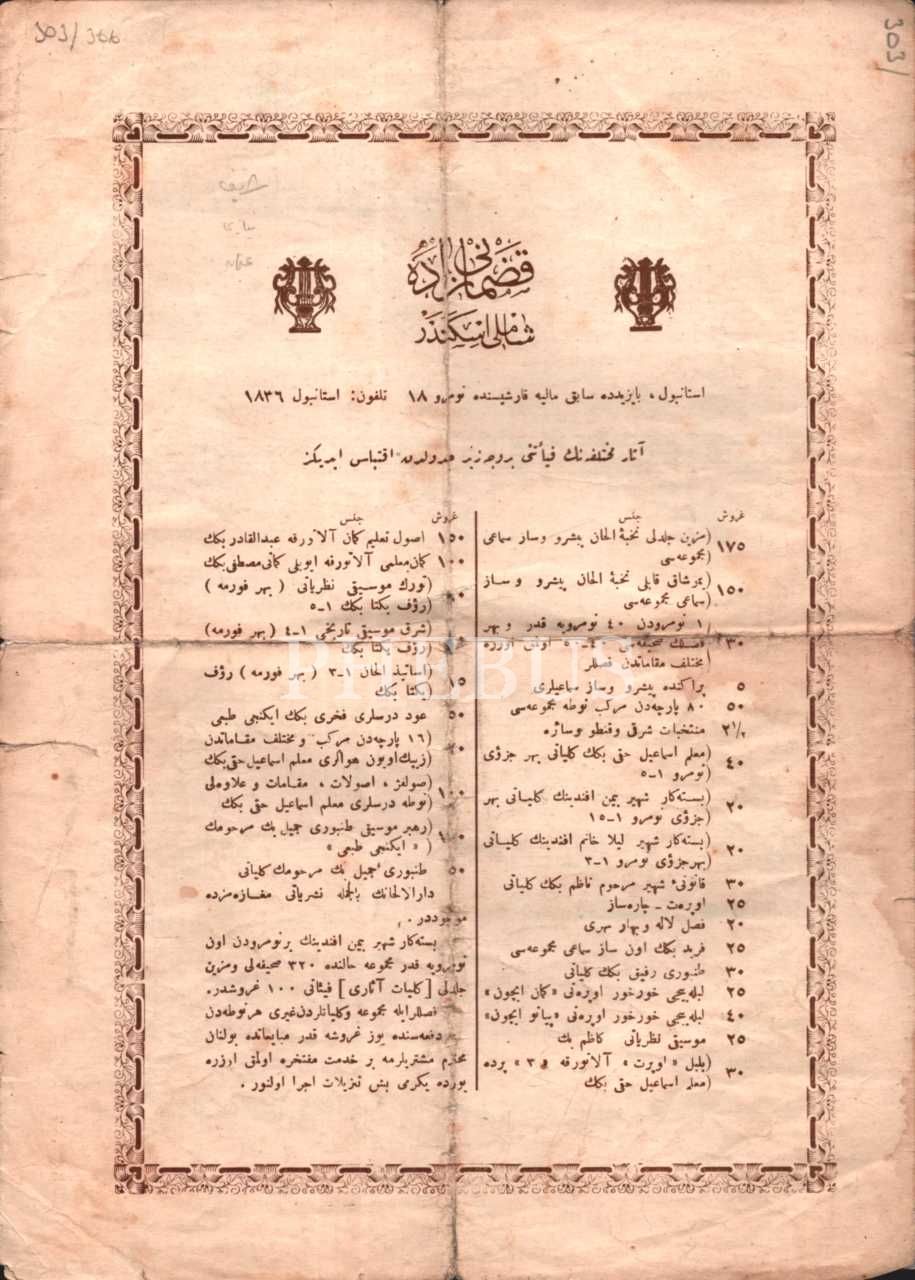 303/ 366
303/
شريف
قضمانی زاده
شاملی اسکندر
استانبول ، بايزيدده سابق ماليه قارشيسنده نومرو ١٨ تلفون: استانبول ١٨٣٦
آثار مختلفه نك فيأتنی بروجه زير جدولدن اقتباس ايديكز
غروش جنس
١٧٥ (مزين جلدلی نخبۀ الحان پيشرو وساز سماعی
(مجموعه سی
١٥٠ (بمرشاق قابلی نخبۀ الحان پيشرو وساز
(سماعی مجموعه سی
٣٠ ١ نومرودن ٤٠ نومرويه قدر وبهر
اولمق اوزره
(مختلف مقاماتدن فصللر
٥ پراكنده پيشرو وساز سماعيلری
٥٠ ٨٠ پارچه دن مركب نوطه مجموعه سی
٢١/٢ منتخبات شرقی وقنطو وسائره
٤٠ (معلم اسماعيل حقی بكك كلياتی بهر جزؤی
(نومرو ١-٥
٢٠ (بسته كار شهير بيمن افندينك كلياتی بهر
(جزؤی نومرو ١-١٥
٢٠ (بسته كار شهير ليلا خانم افندينك كلياتی
(بهرجزؤی نومرو ١-٣
٣٠ قانونیء شهير مرحوم ناظم بكك كلياتی
٢٥ اوپره ت ـ چاره ساز
٢٠ فصل لاله وبهار سهری
٢٥ فريد بكك اون ساز سماعی مجموعه سی
٣٠ طنبوری رفيق بكك كلياتی
٢٥ لبله بيجی خورخور اوپره تی «كمان ايچون»
٤٠ لبله بيجی خورخور اوپره تی «پيانو ايچون»
٢٥ موسيقی نظرياتی كاظم بك
٣٠ (بلبل « اوپرت » آلاتورقه و٣ » پرده
(معلم اسماعيل حقی بكك
غروش جنس
١٥٠ اصول تعليم كمان آلاتورقه عبدالقادر بكك
١٠٠ كمان معلمی آلاتورقه ايوبلی كمانی مصطفی بكك
(تورك موسيقی نظرياتی ( بهر فورمه )
(رؤف يكتا بكك ١-٥
(شرق موسيقی تاريخی ١-٤ ( بهر فورمه )
(رؤف يكتا بكك
١٥ (اساتيذ الحان ١-٣ ( بهر فورمه ) رؤف
(يكتا بكك
٥٠ عود درسلری فخری بكك ايكنجی طبعی
(١٦ پارچه دن مركب ومختلف مقاماتدن
(زيبك اويون هوالری معلم اسماعيل حق بكك
١٠٠ (صولفژ ، اصولات ، مقامات و علاوه لی
(نوطه درسلری معلم اسماعيل حقی بكك
(رهبر موسيقی طنبوری جميل بك مرحومك
( « ايكنجی طبعی »
٥٠ طنبوری جميل بك مرحومك كلياتی
دارالالحانك بالجمله نشرياتی مغازه مزده
موجوددر .
بسته كار شهير بيمن افندينك برنومرودن اون
نومرويه قدر مجموعه حالنده ٣٢٠ صحيفه لی ومزين
جلدلی [كليات آثاری] فيئاتی ١٠٠ غروشدر.
فصللرايله مجموعه وكلياتلردن غيری هرنوطه دن
دفعه سنده يوز غروشه قدر مبايعاتده بولنان
محترم مشتريلرمه بر خدمت مفتخره اولمق اوزره
يوزده يكرمی بش تنزيلات اجرا اولنور .
PHEBUS